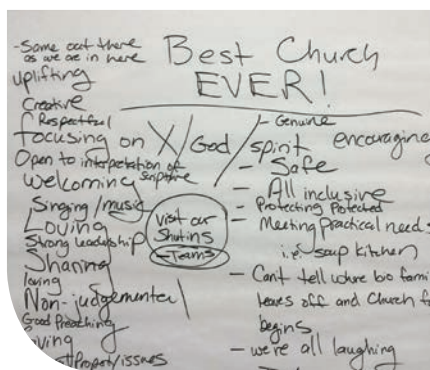 Best Church
EVER!
-Same out there
as we are in here
uplifting
Creative
Respectful
focusing on X/God/spirit
Open to interpretation of
scripture
Welcoming
Singing/music
Loving
Strong leadership
Sharing
loving
Non-judgemental
Good Preaching
Property/issues
visit our
Shutins
-Teams
- Genuine
encouraging
- Safe
- All inclusive
- Protecting Potected
- Meeting practical need
i.e. soup kitchen
- Can't tell where bio fami
leaves off and Church f
begins
- we're all laughing